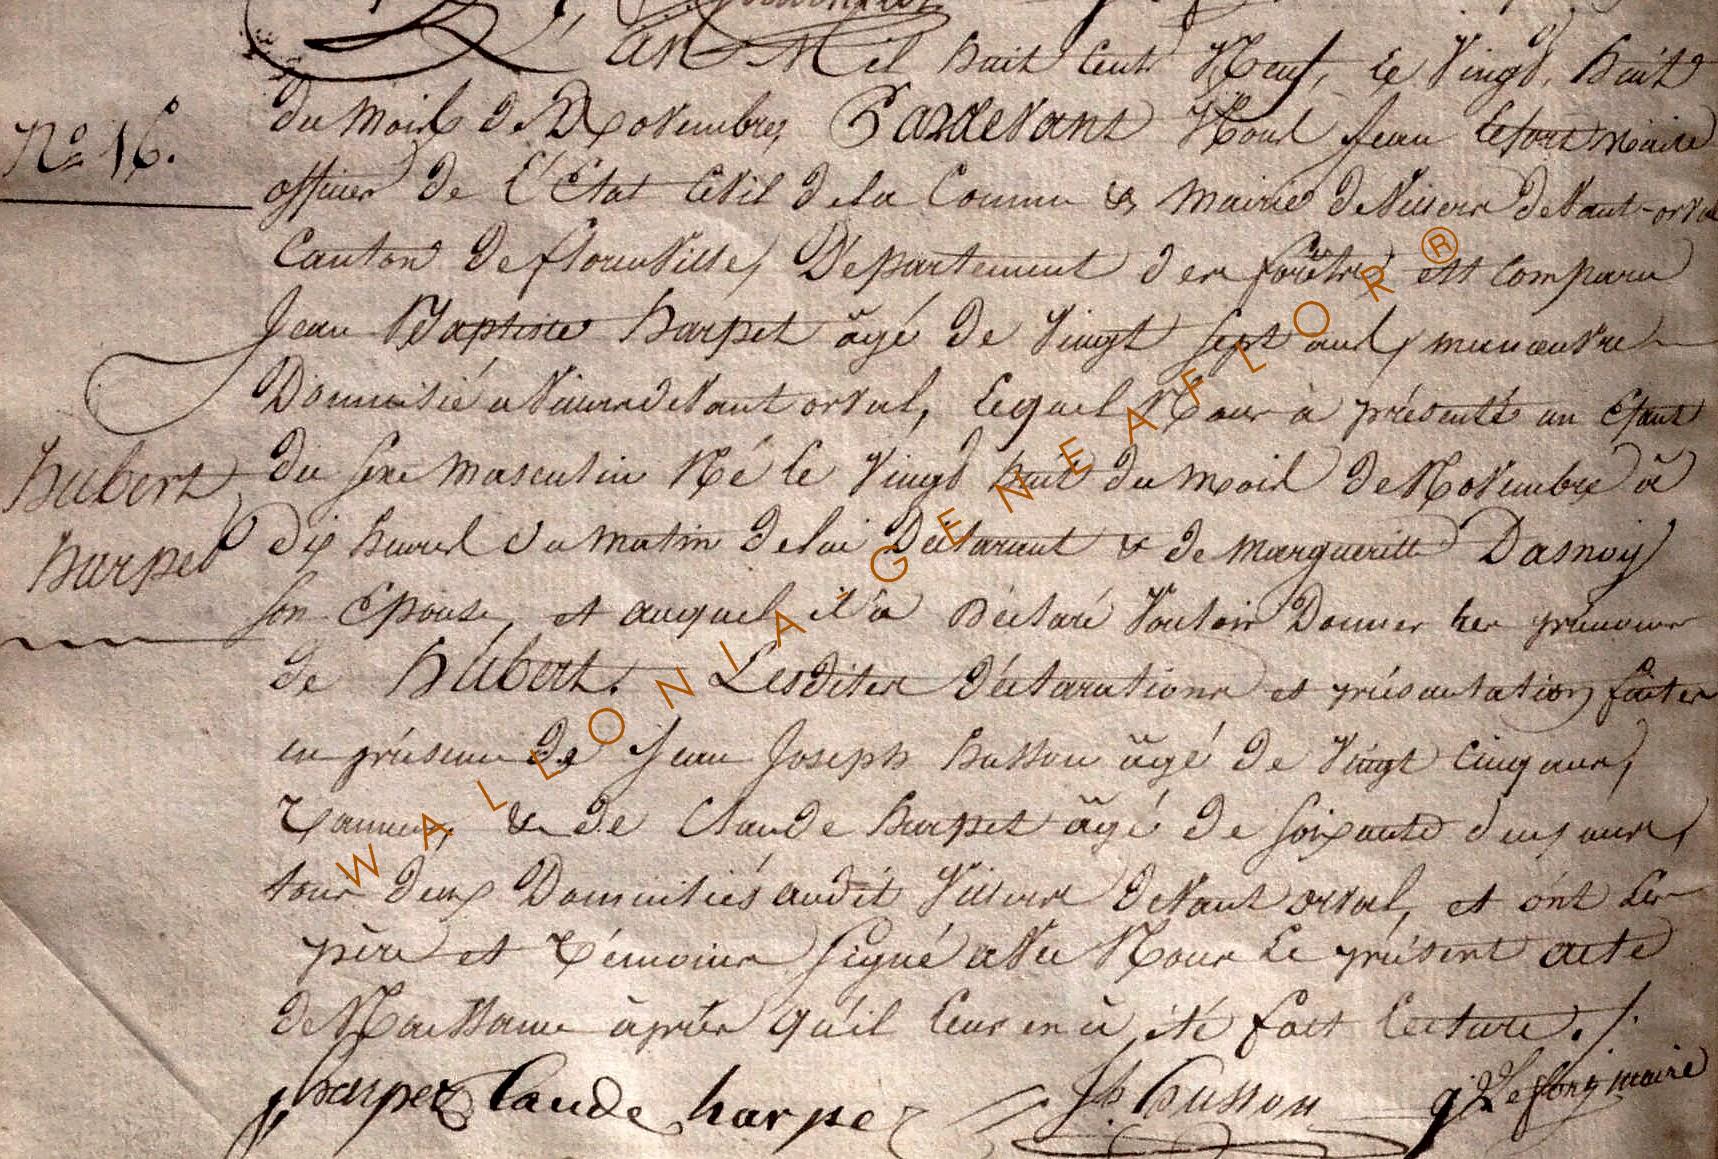 L'an Mil huit Cent Neuf, le Vingt huit
du mois de Novembre, Pardevant Nous Jean Lefort Maire
officier de L'Etat Civil de la Commune & Mairie de Villers devant-orval
Nº 16.
Canton de florenville, Département des forêts est comparu
Jean Baptiste harpet âgé de Vingt sept ans, manœuvre
Domicilié a Villers devant orval, Lequel Nous à présenté un Efant
hubert
du sexe masculin Né le Vingt huit du mois de Novembre à
harpet
dix heures du matin de lui Déclarant & de margueritte Dasnoy
son Epouse, et auquel il a Déclaré Vouloir Donner les prénoms
de Hubert. Lesdites déclarations et présentation faites
en présence de Jean Joseph husson âgé de Vingt cinq ans,
Tanneur, & de Claude harpet âgé de soixante deux ans,
tous deux Domiciliés audit Villers devant orval, et ont les
père et Témoins signé avec Nous Le présent acte
de Naissance après qu'il leur en à été fait lecture ./.
j b harpet Claude harpe J h husson g j Lefort maire
WALLONIA-GENEAFLOR®